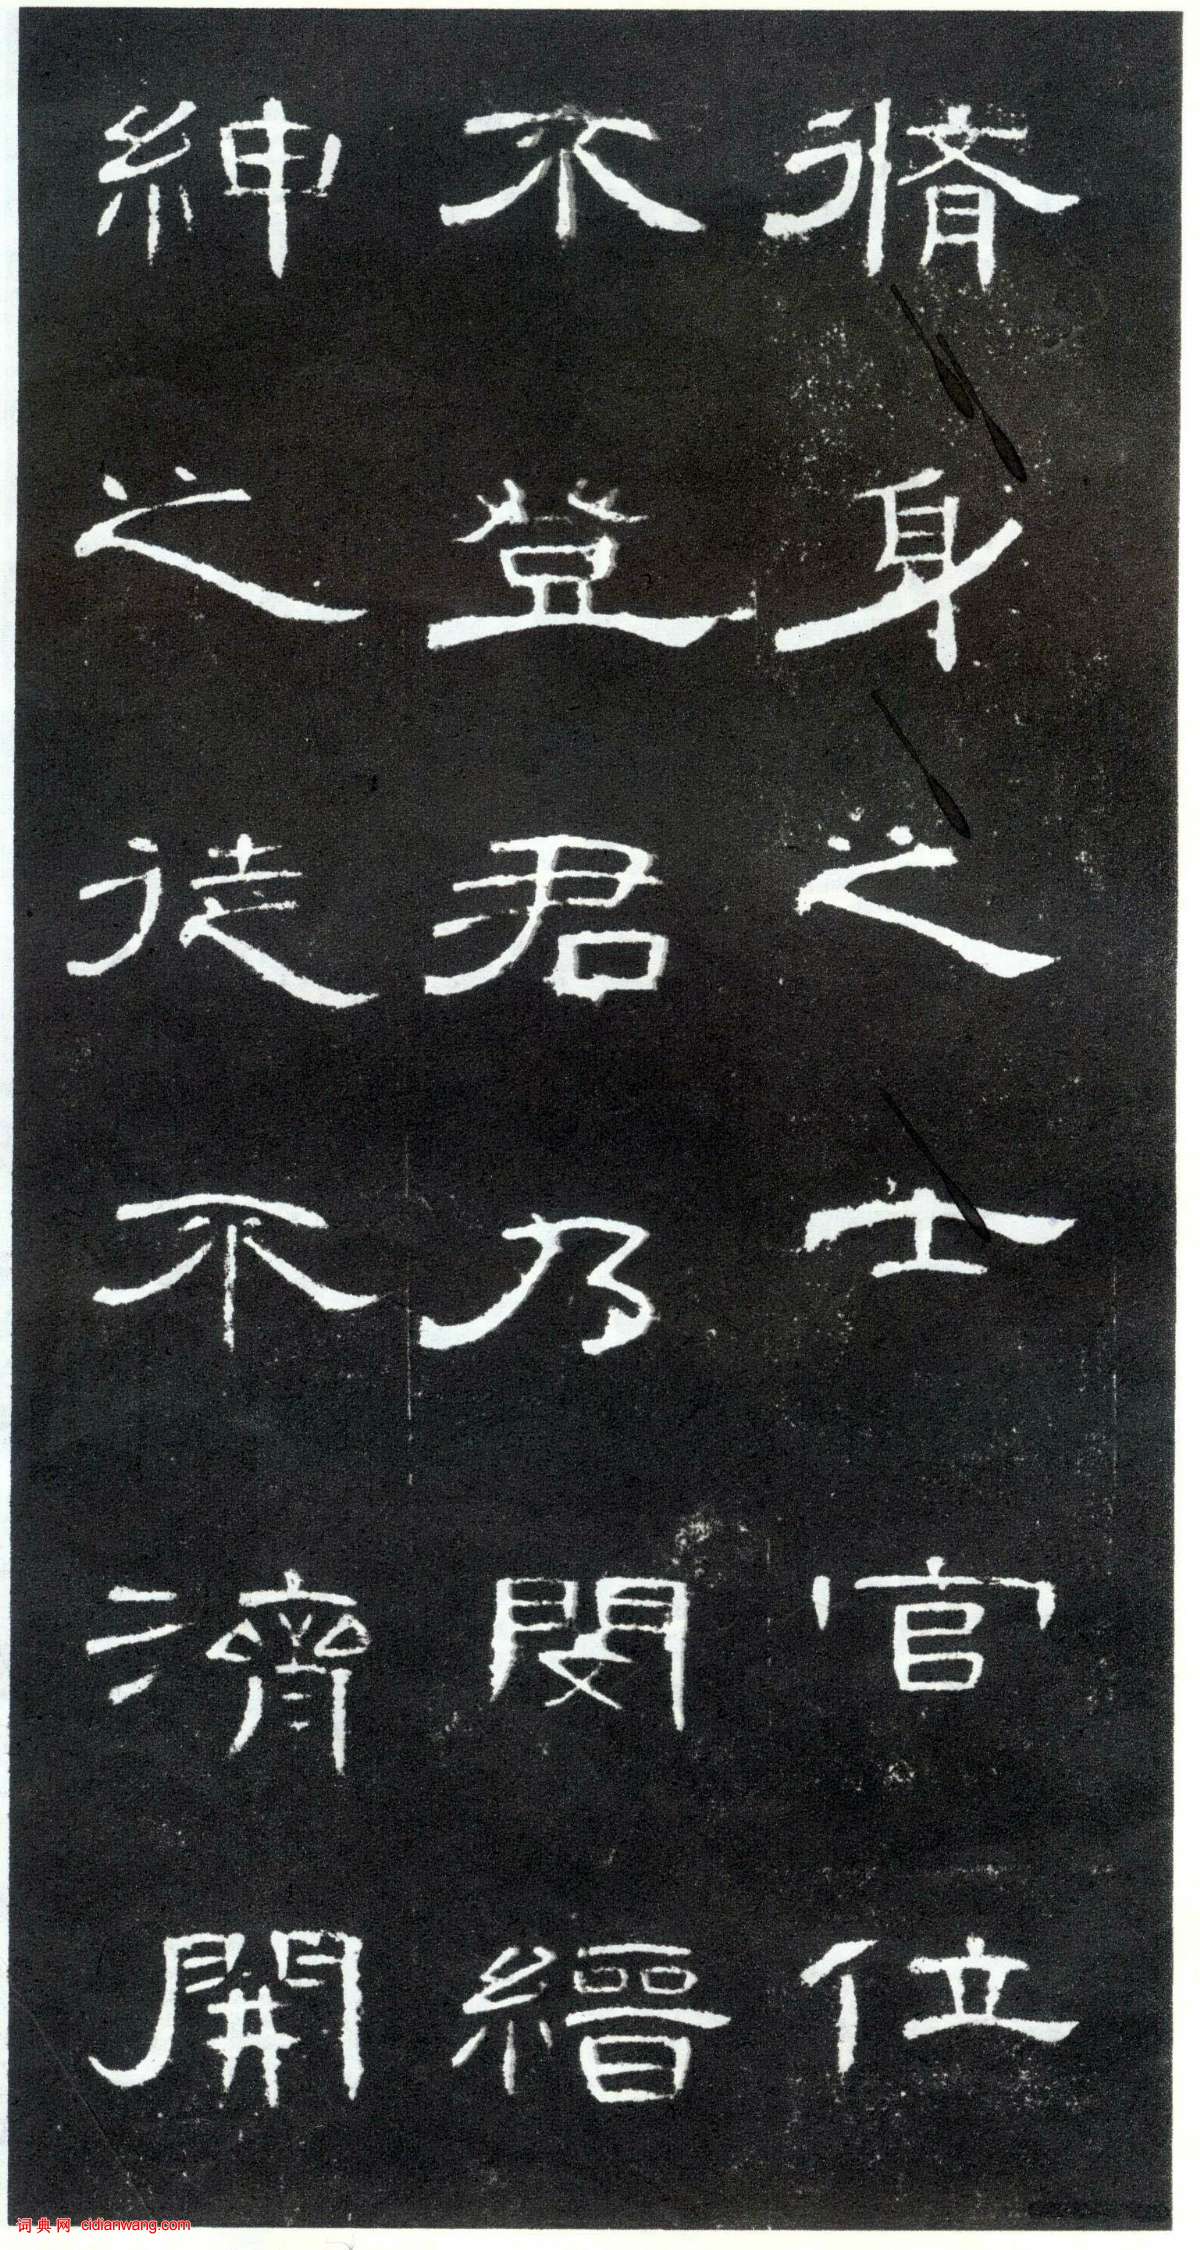 脩身之士官位
不登君乃閔縉
紳之徒不濟開
词典网 cidianwang.com